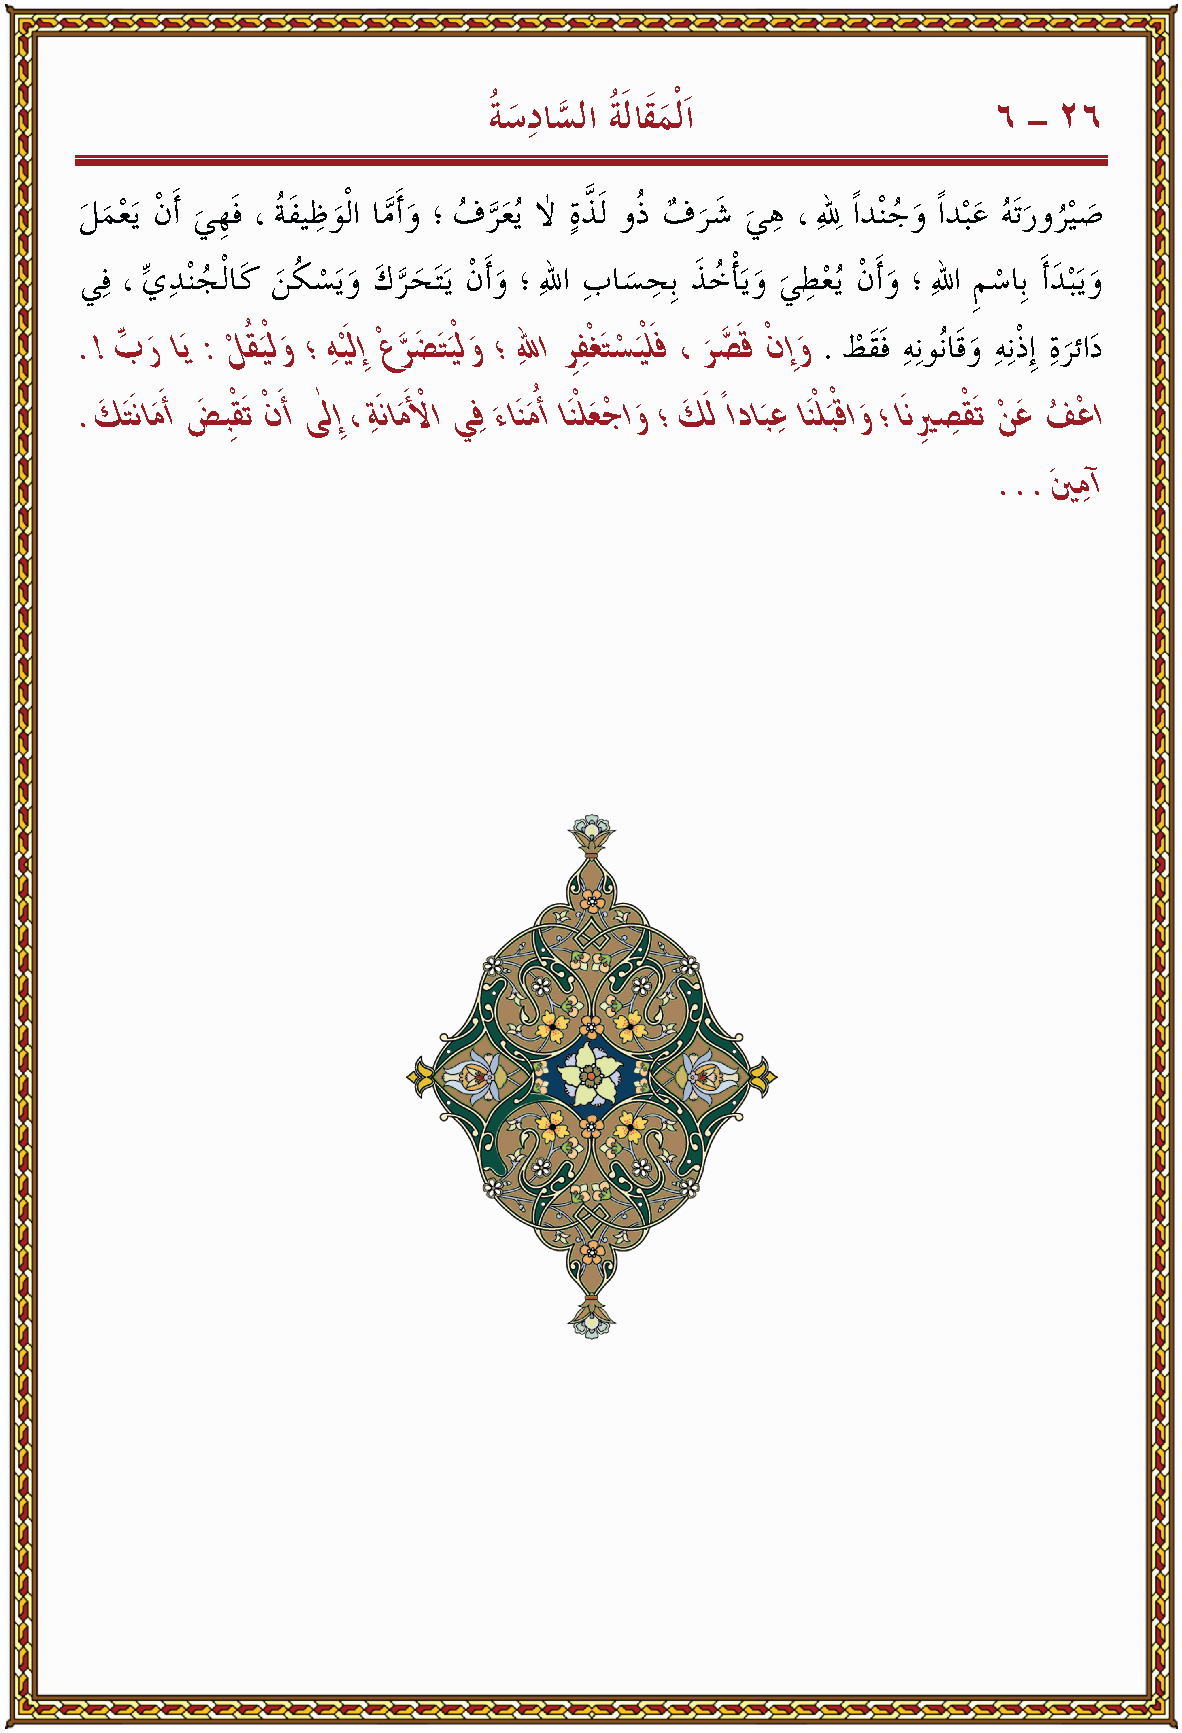 ٢٦ – ٦ اَلْمَقَالَةُ السَّادِسَةُ
صَيْرُورَتَهُ عَبْداً وَجُنْداً لِلهِ ، هِيَ شَرَفٌ ذُو لَذَّةٍ لَا يُعَرَّفُ ؛ وَأَمَّا الْوَظِيفَةُ ، فَهِيَ أَنْ يَعْمَلَ
وَيَبْدَأَ بِاسْمِ اللهِ ؛ وَأَنْ يُعْطِيَ وَيَأْخُذَ بِحِسَابِ اللهِ ؛ وَأَنْ يَتَحَرَّكَ وَيَسْكُنَ كَالْجُنْدِيِّ ، فِي
دَائرَةِ إِذْنِهِ وَقَانُونِهِ فَقَطْ . وَإِنْ قَصَّرَ ، فَلْيَسْتَغْفِرِ اللهَ ؛ وَلْيَتَضَرَّعْ إِلَيْهِ ؛ وَلْيَقُلْ : يَا رَبِّ ! .
اعْفُ عَنْ تَقْصِيرِنَا ؛ وَاقْبَلْنَا عِبَاداً لَكَ ؛ وَاجْعَلْنَا أُمَنَاءَ فِي الْأَمَانَةِ ، إِلٰى أَنْ تَقْبِضَ أَمَانَتَكَ .
آمِينَ . . .